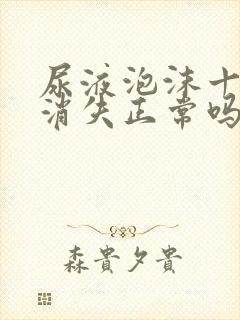 尿液泡沫十
消失正常吗
森貴夕貴